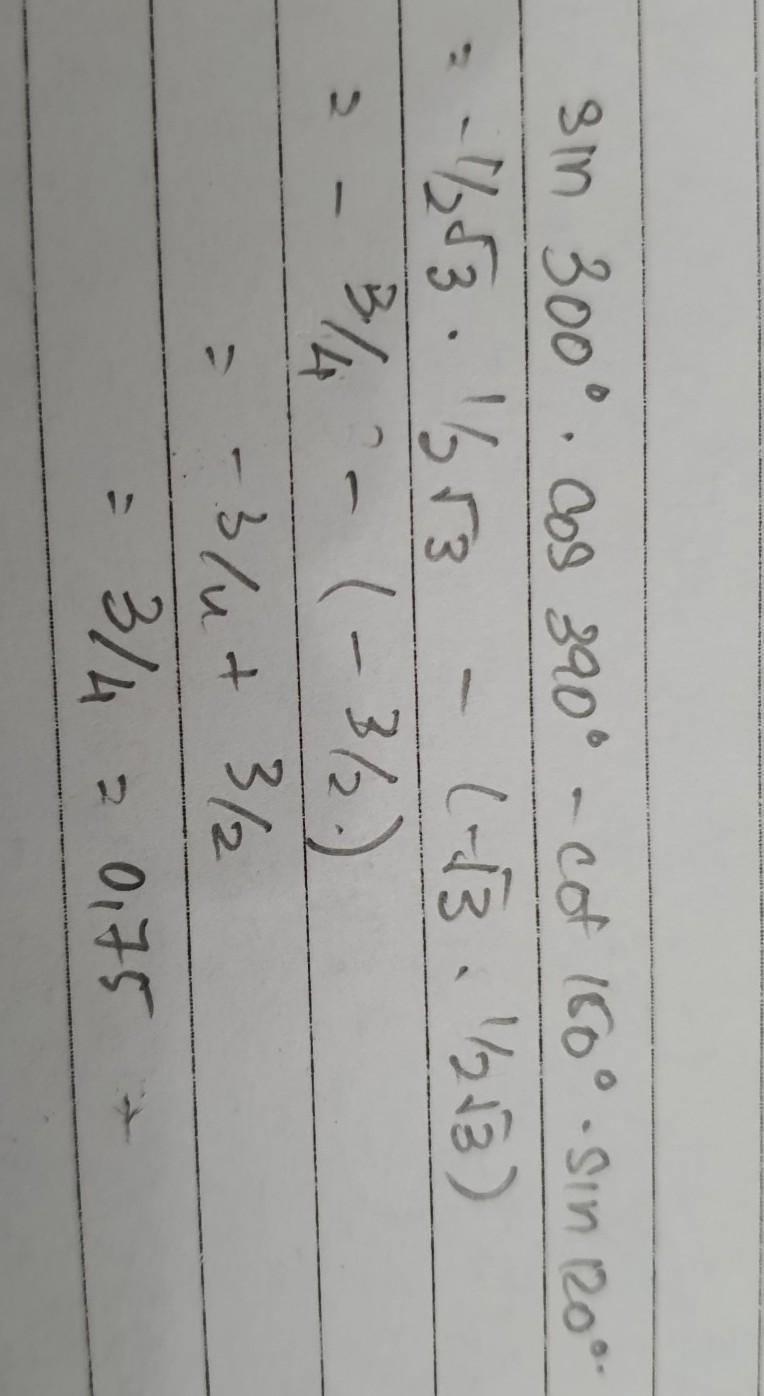 sin 300° . cos 390° - cot 150° . sin 120°.
= -1/2√3 . 1/2√3 - (-√3 . 1/2√3)
= - 3/4 - (- 3/2.)
= - 3/4 + 3/2
= 3/4 = 0,75